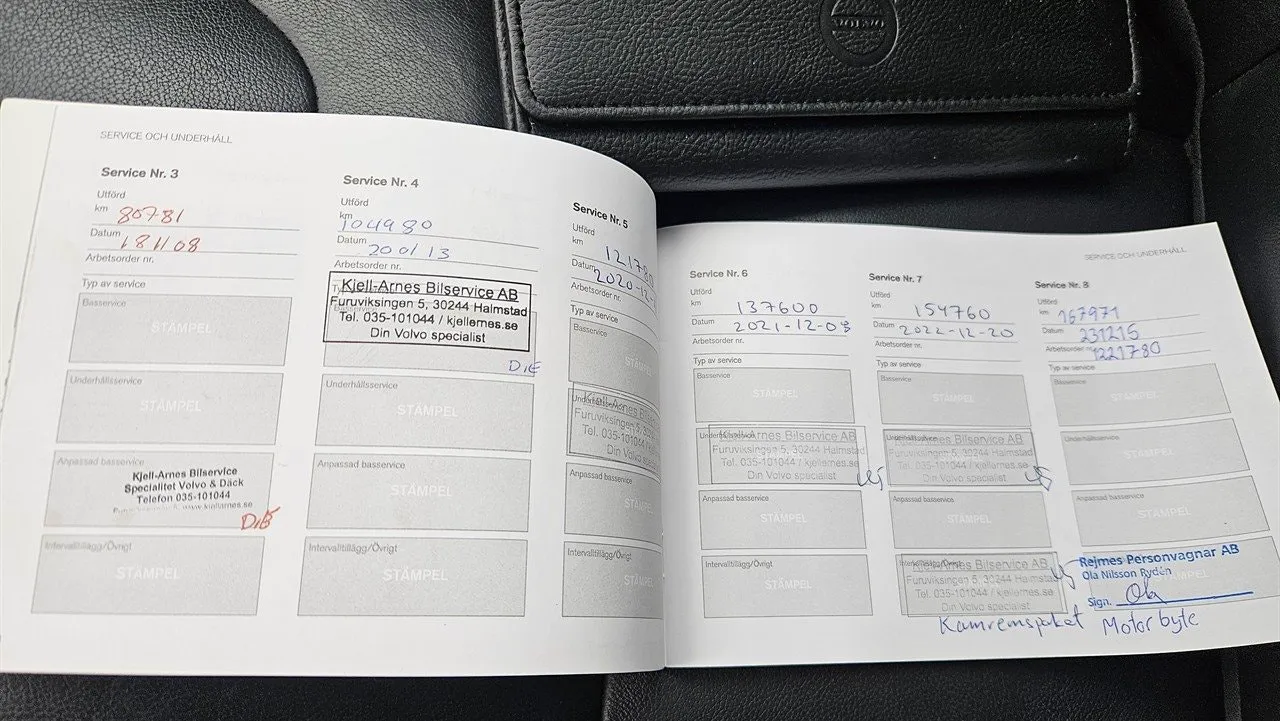 VOLVO
SERVICE OCH UNDERHÅLL
Service Nr. 3
Utförd
km 80781
Datum 181108
Arbetsorder nr.
Typ av service
Basservice
STÄMPEL
Underhållsservice
STÄMPEL
Anpassad basservice
Kjell-Arnes Bilservice
Specialitet Volvo & Däck
Telefon 035-101044
www.kjellarnes.se
DiE
Intervalltillägg/Övrigt
STÄMPEL
Service Nr. 4
Utförd
km 104980
Datum 200113
Arbetsorder nr.
Kjell-Arnes Bilservice AB
Furuviksingen 5, 30244 Halmstad
Tel. 035-101044 / kjellernes.se
Din Volvo specialist
DiE
Underhållsservice
STÄMPEL
Anpassad basservice
STÄMPEL
Intervalltillägg/Övrigt
STÄMPEL
Service Nr. 5
Utförd
km
Datum 2020-12-
Arbetsorder nr.
Typ av service
Basservice
STÄM
Underhållsservice
Kjell-Arnes Bil
Furuviksingen 5,
Tel. 035-101044
Din Vo
Anpassad basservice
STÄM
Intervalltillägg/Övrigt
STÄM
SERVICE OCH UNDERHÅLL
Service Nr. 6
Utförd
km 137600
Datum 2021-12-08
Arbetsorder nr.
Typ av service
Basservice
STÄMPEL
Kjell-Arnes Bilservice AB
Furuviksingen 5, 30244 Halmstad
Tel. 035-101044 / kjellernes.se
Din Volvo specialist
Anpassad basservice
STÄMPEL
Intervalltillägg/Övrigt
STÄMPEL
Service Nr. 7
Utförd
km 154760
Datum 2022-12-20
Arbetsorder nr.
Typ av service
Basservice
STÄMPEL
Kjell-Arnes Bilservice AB
Furuviksingen 5, 30244 Halmstad
Tel. 035-101044 / kjellernes.se
Din Volvo specialist
Anpassad basservice
STÄMPEL
Kjell-Arnes Bilservice AB
Furuviksingen 5, 30244 Halmstad
Tel. 035-101044 / kjellernes.se
Din Volvo specialist
Kamremspaket
Service Nr. 8
Utförd
km 167971
Datum 231215
Arbetsorder nr. 1221780
Typ av service
Basservice
STÄMPEL
Underhållsservice
STÄMPEL
Anpassad basservice
STÄMPEL
Rejmes Personvagnar AB
Ola Nilsson Rydén
STÄMPEL
Sign. Ola
Motor byte